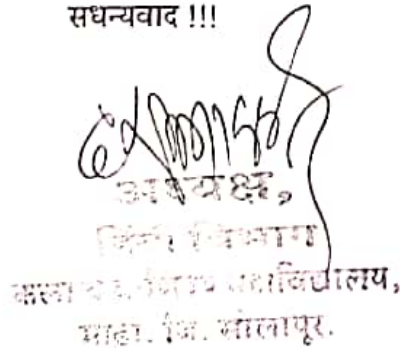 सधन्यवाद !!!
अध्यक्ष,
हिन्दी विभाग
कला महाविद्यालय,
माढा. जि. सोलापूर.